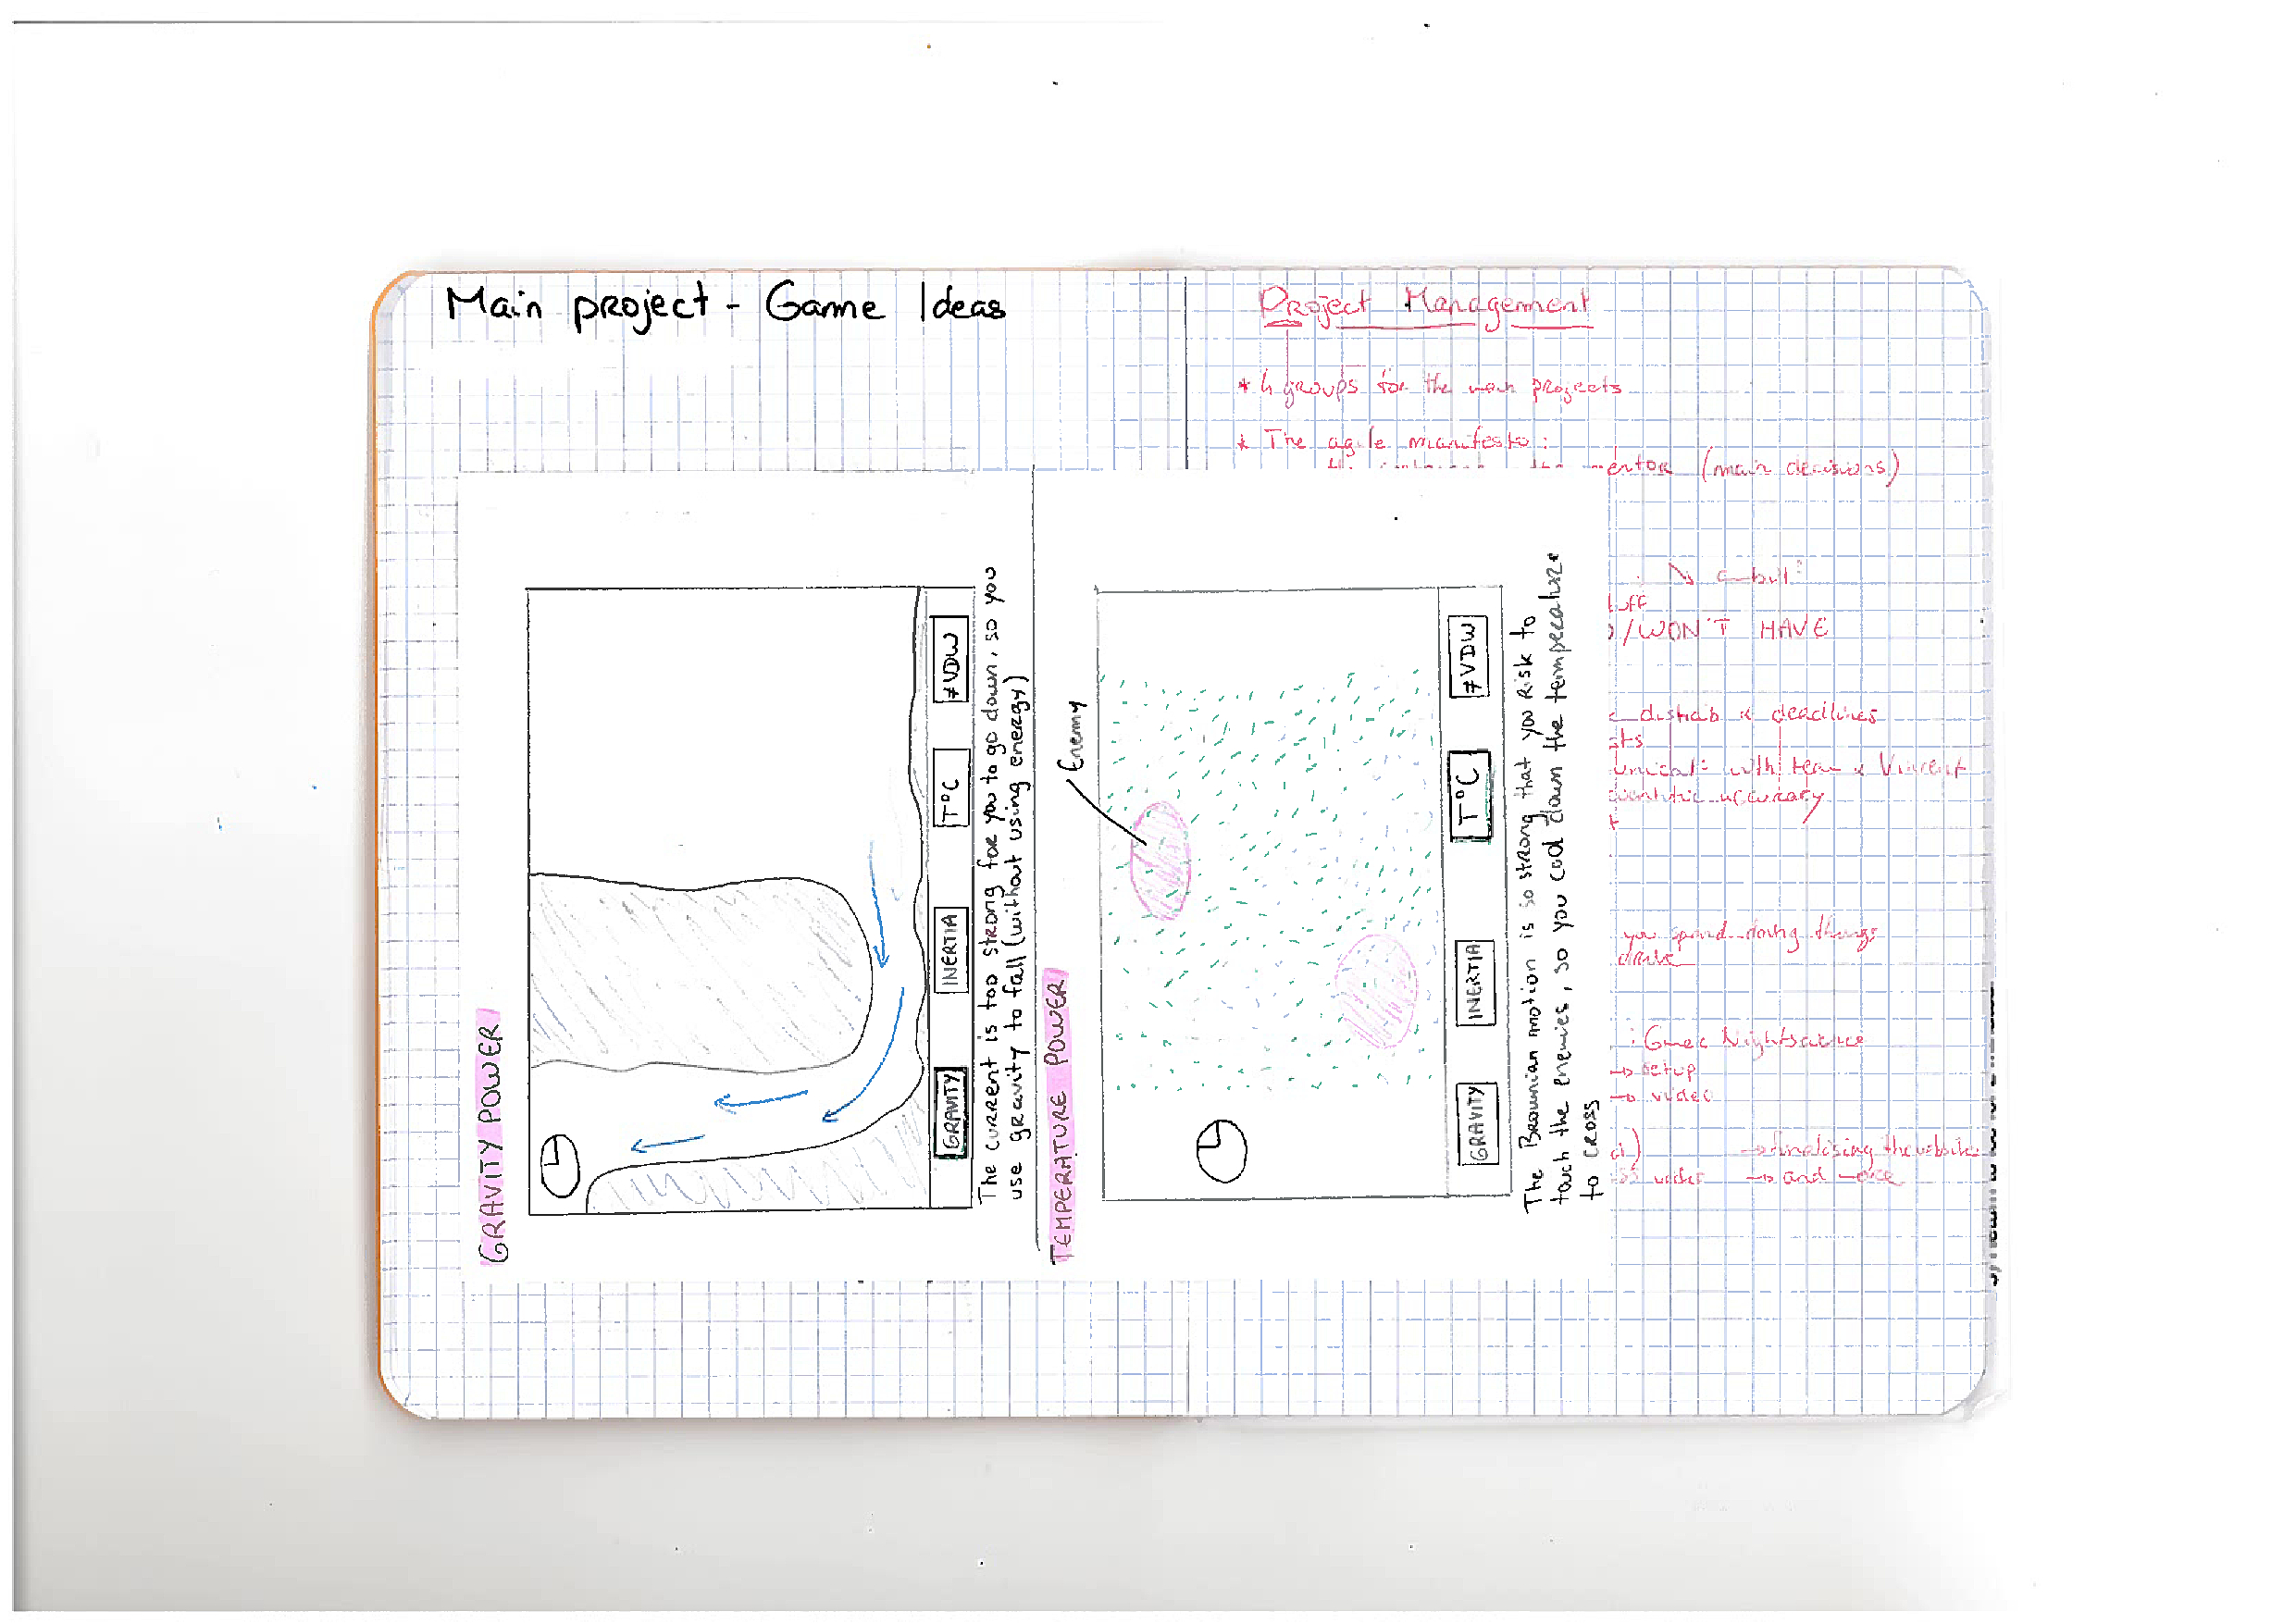 Main project - Game Ideas
GRAVITY POWER
GRAVITY
INERTIA
T°C
≠VDW
The current is too strong for you to go down, so you
use gravity to fall (without using energy)
TEMPERATURE POWER
Enemy
GRAVITY
INERTIA
T°C
≠VDW
The Brownian motion is so strong that you risk to
touch the enemies, so you cool down the temperature
to cross
Project Management
* 4 groups for the main projects
* The agile manifesto:
mentor (main decisions)
/WON'T HAVE
distrib & deadlines
with team & Vincent
accuracy
you spend doing things
drive
: Gmec Nightscience
→ setup
→ video
→ finalising the website
video → and